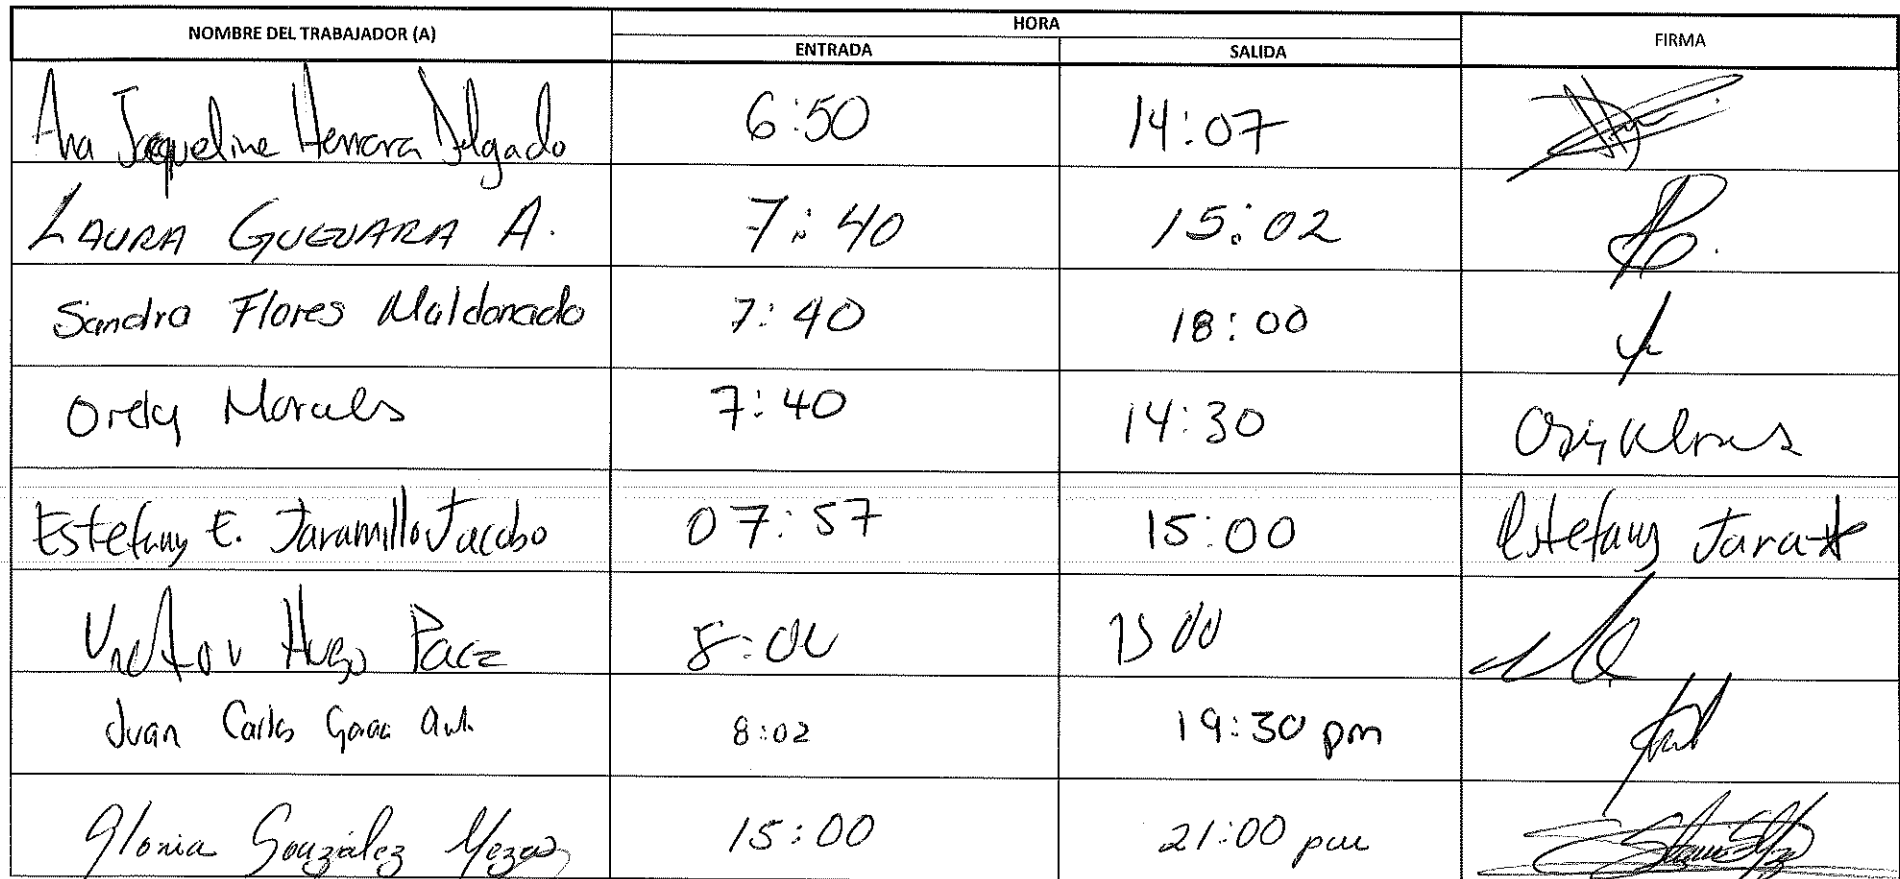 NOMBRE DEL TRABAJADOR (A) HORA FIRMA
ENTRADA SALIDA
Ana Jaqueline Herrera Delgado 6:50 14:07
LAURA GUEVARA A. 7:40 15:02
Sandra Flores Maldonado 7:40 18:00
Orely Morales 7:40 14:30
Estefany E. Jaramillo Jacobo 07:57 15:00 Estefany Jara
Victor Hugo Paez 8:00 15 00
Juan Carlos 8:02 19:30 pm
Gloria González Meza 15:00 21:00 pm